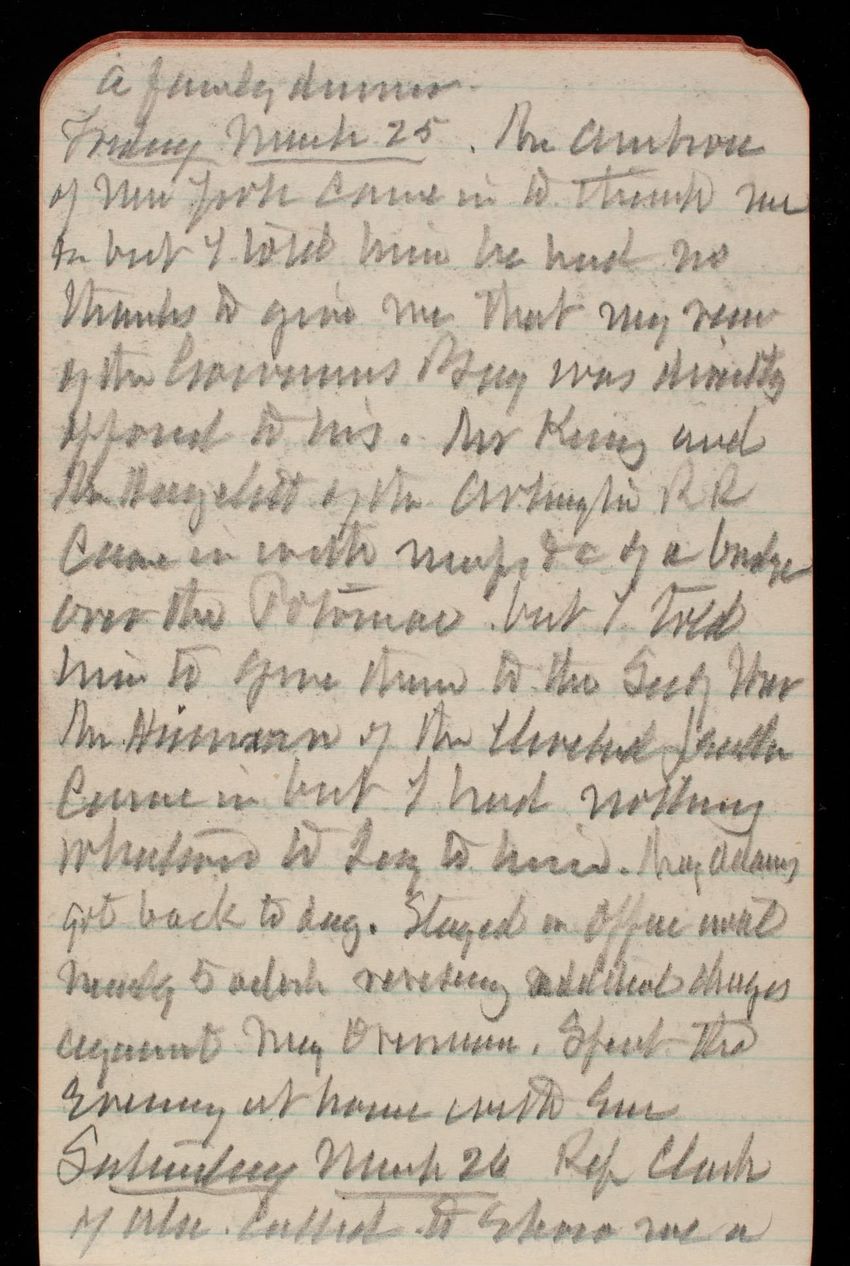 a family dinner.
Friday March 25. Mr Ambrose
of New York came in to thank me
but I told him he had no
thanks to give me that my view
of the Governors was directly
opposed to his. Mr King and
Mr of the Arlington RR
Came in with maps &c of a bridge
over the Potomac but I told
him to give them to the Secy War
Mr of the Cleveland
Came in but I had nothing
whatever to say to him. Maj Adams
got back to day. Stayed in Office until
nearly 5 oclock revising additional charges
against Maj. Spent the
Evening at home with
Saturday March 26 Rep Clark
of Ala. Called to show me a